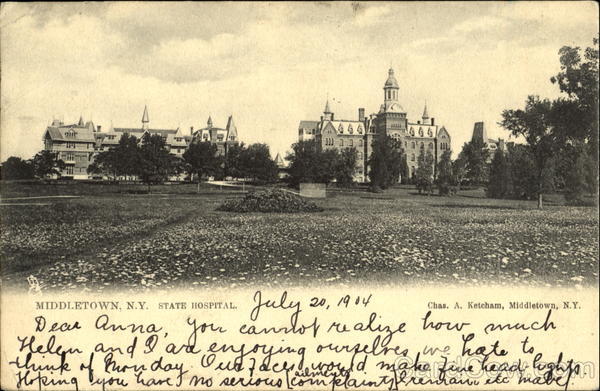 MIDDLETOWN, N.Y. STATE HOSPITAL. July 20, 1904 Chas. A. Ketcham, Middletown, N.Y.
Dear Anna, You cannot realize how much
Helen and I are enjoying ourselves, we hate to
think of Monday Our faces would make fine head lights
Hoping you have no serious ailments (complaints) I remain etc Mabe